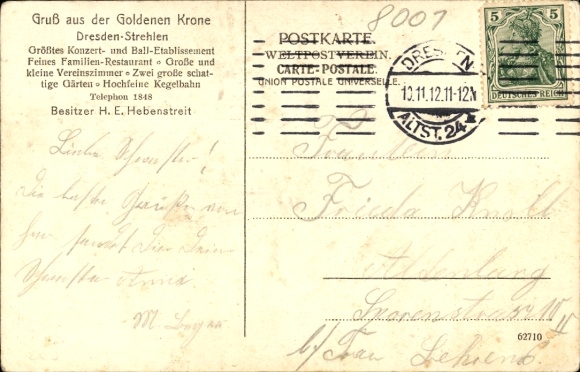 Gruß aus der Goldenen Krone
Dresden-Strehlen
Größtes Konzert- und Ball-Etablissement
Feines Familien-Restaurant ∘ Große und
kleine Vereinszimmer ∘ Zwei große schat-
tige Gärten ∘ Hochfeine Kegelbahn
Telephon 1848
Besitzer H. E. Hebenstreit
8007
POSTKARTE.
WELTPOSTVEREIN.
CARTE-POSTALE.
UNION POSTALE UNIVERSELLE.
DRESDEN
10.11.12.11-12V
ALTST. 24
5 5
DEUTSCHES REICH
Liebe Schwester!
Die besten Grüße von
Schwester
M.
Fräulein
Frieda
Altenburg
b/ Frau
62710